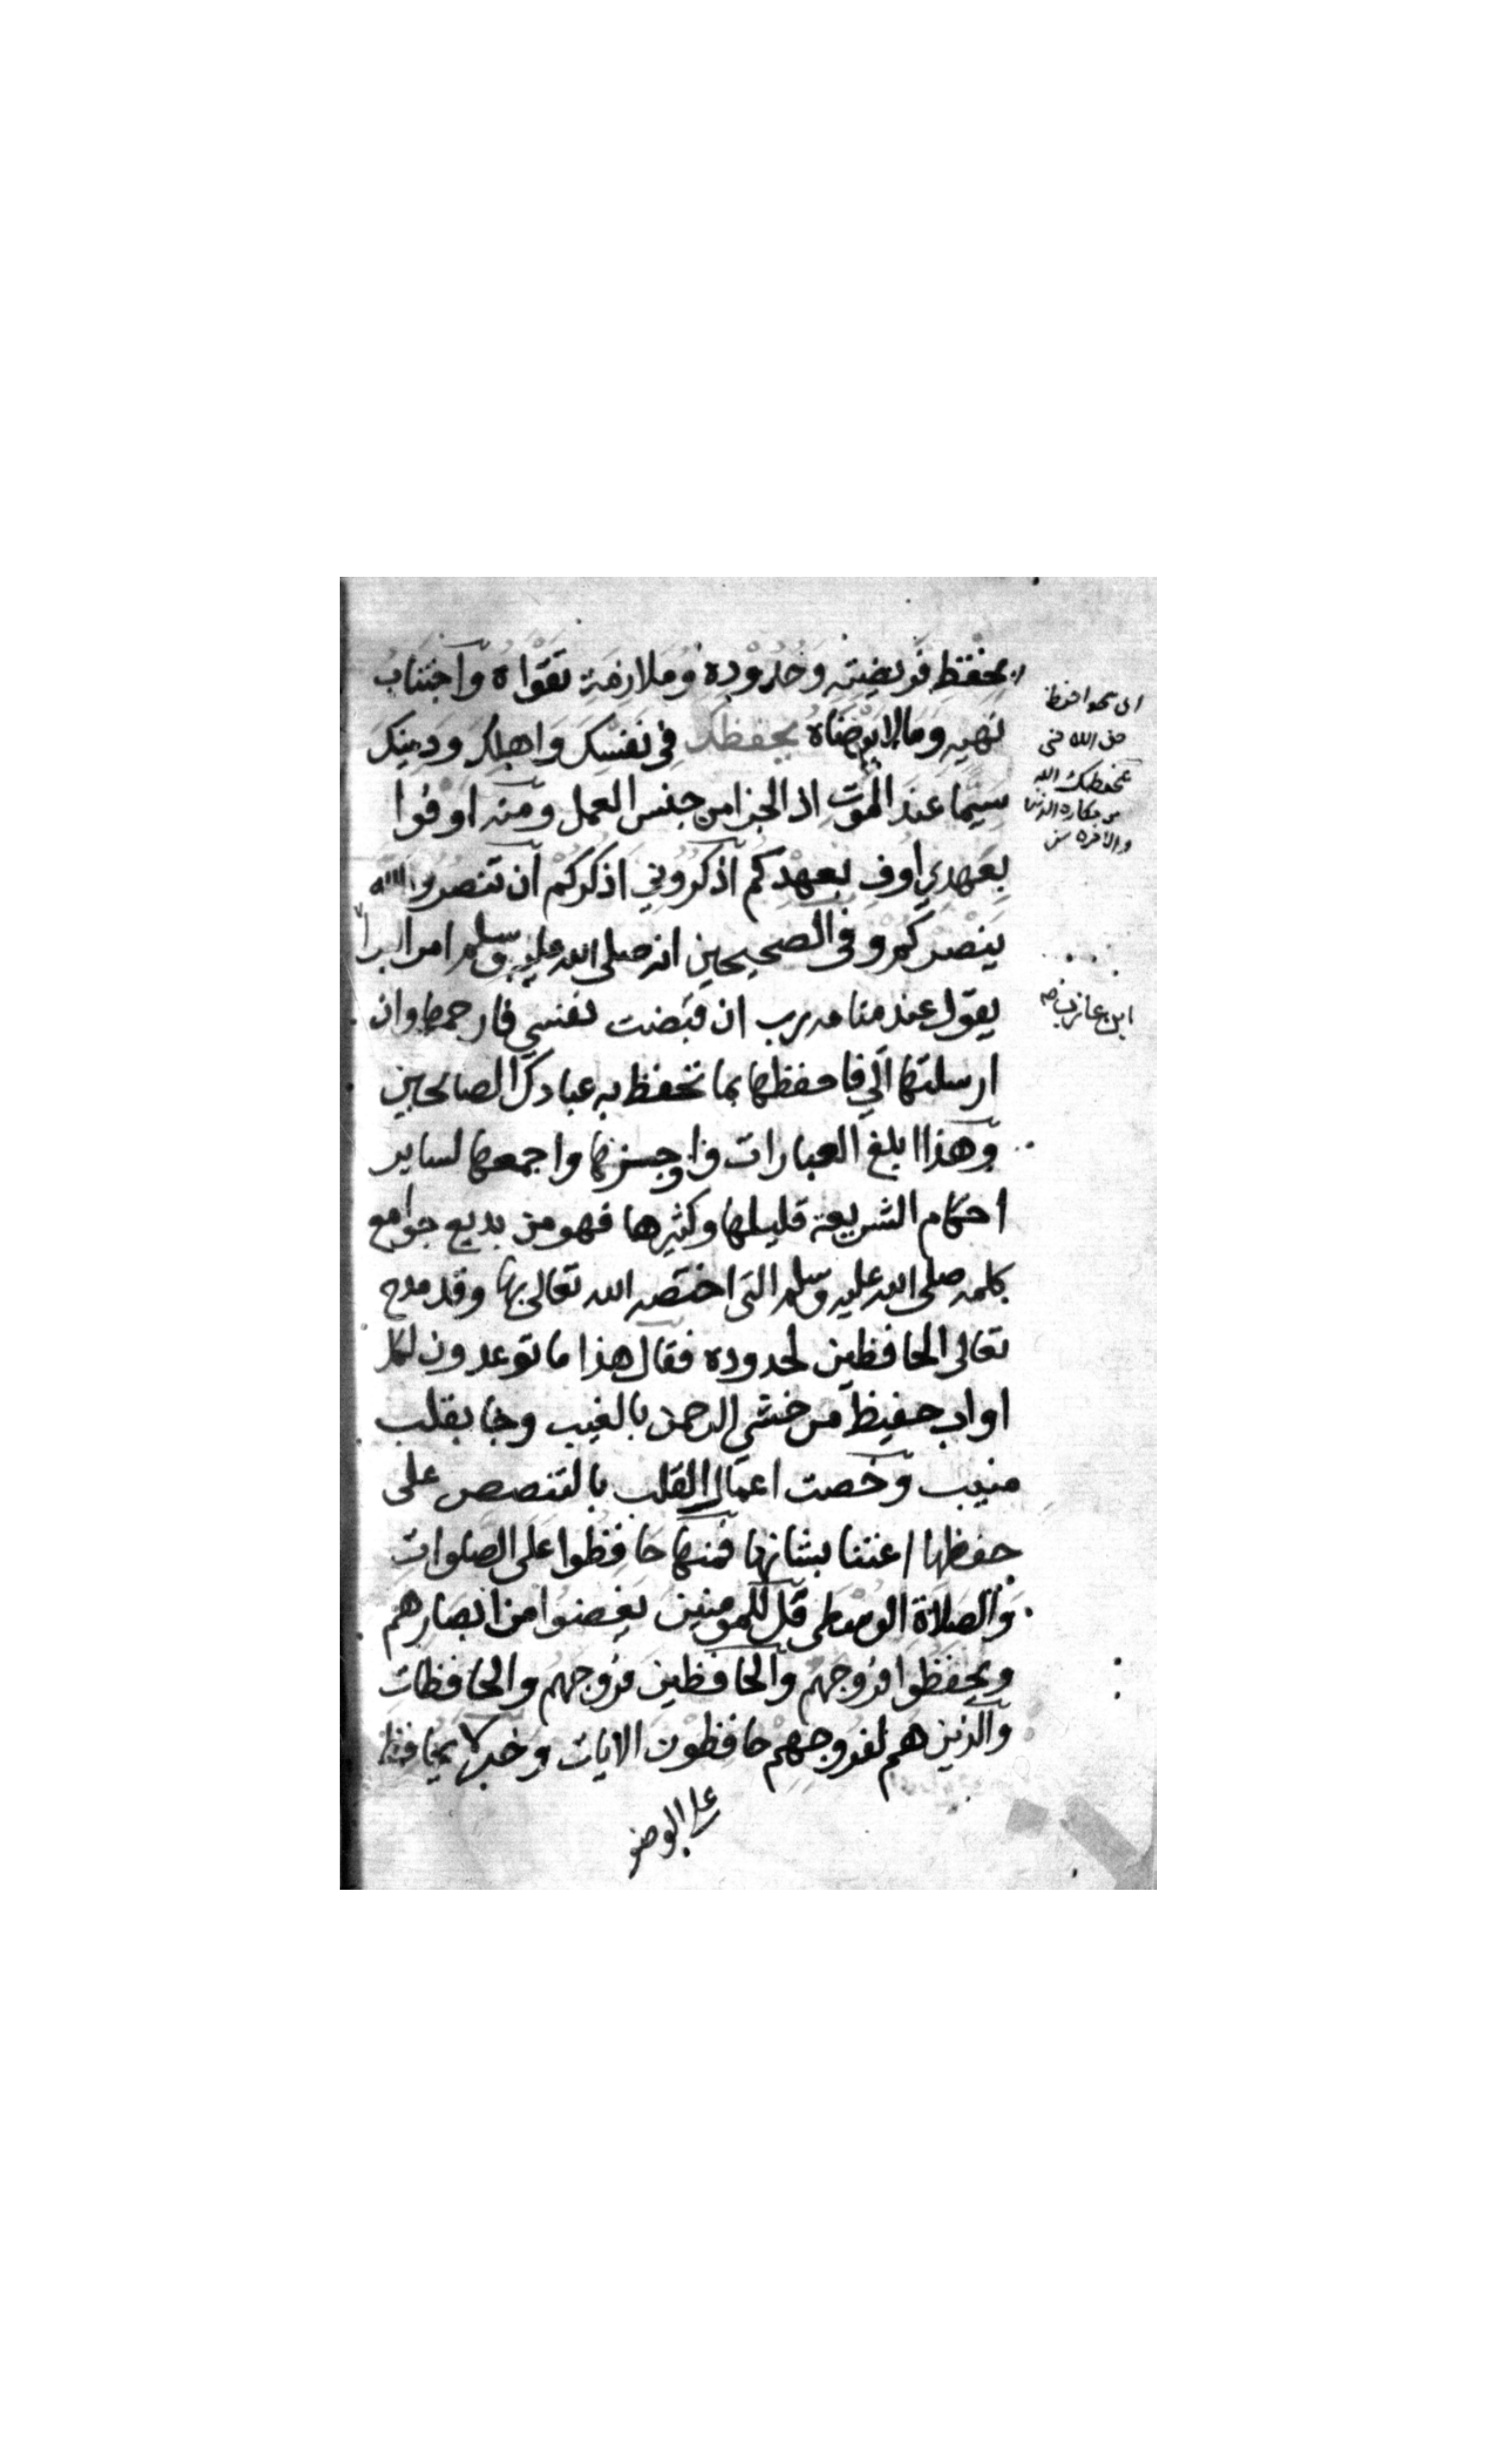 بحفظ فريضته وحدوده وملازمة تقواه واجتناب
نهيه وما لا يرضاه يحفظك في نفسك واهلك ودينك
سيما عند الموت اذ الجزا من جنس العمل ومنه اوفوا
بعهدي اوف بعهدكم اذكروني اذكركم ان تنصروا الله
ينصركم وفي الصحيحين انه صلى الله عليه وسلم امر البرا
يقول عند منامه رب ان قبضت نفسي فارحمها وان
ارسلتها الي فاحفظها بما تحفظ به عبادك الصالحين
وهذا ابلغ العبارات واوجزها واجمعها لساير
احكام الشريعة قليلها وكثيرها فهو من بديع جوامع
كلمه صلى الله عليه وسلم التي اختصه الله تعالى بها وقد مدح
تعالى الحافظين لحدوده فقال هذا ما توعدون لكل
اواب حفيظ من خشي الرحمن بالغيب وجا بقلب
منيب وخصت اعمال القلب بالتنصص على
حفظها اعتنا بشانها فمنها حافظوا على الصلوات
والصلاة الوسطى قل للمومنين يغضوا من ابصارهم
ويحفظوا فروجهم والحافظين فروجهم والحافظات
والذين هم لفروجهم حافظون الايات وخبر لا يحافظ
على الوضو
احفظ
حق الله
يحفظك الله
من مكاره الدنيا
والاخرة
ابن عازب